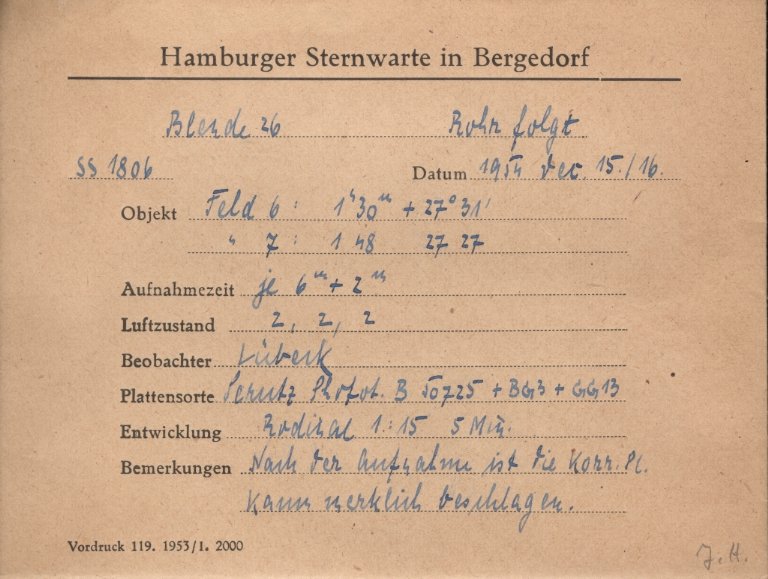 Hamburger Sternwarte in Bergedorf
Blende 26 Rohr folgt
SS 1806 Datum 1954 Dec. 15./16.
Objekt Feld 6 : 1ʰ30ᵐ + 27° 31'
" 7 : 1 48 27 27
Aufnahmezeit je 6ᵐ + 2ᵐ
Luftzustand 2, 2, 2
Beobachter Lübeck
Plattensorte Perutz Phofot. B 50725 + BG3 + GG13
Entwicklung Rodinal 1:15 5 Min.
Bemerkungen Nach der Aufnahme ist die Korr. Pl.
kaum merklich beschlagen.
Vordruck 119. 1953/1. 2000
J.H.